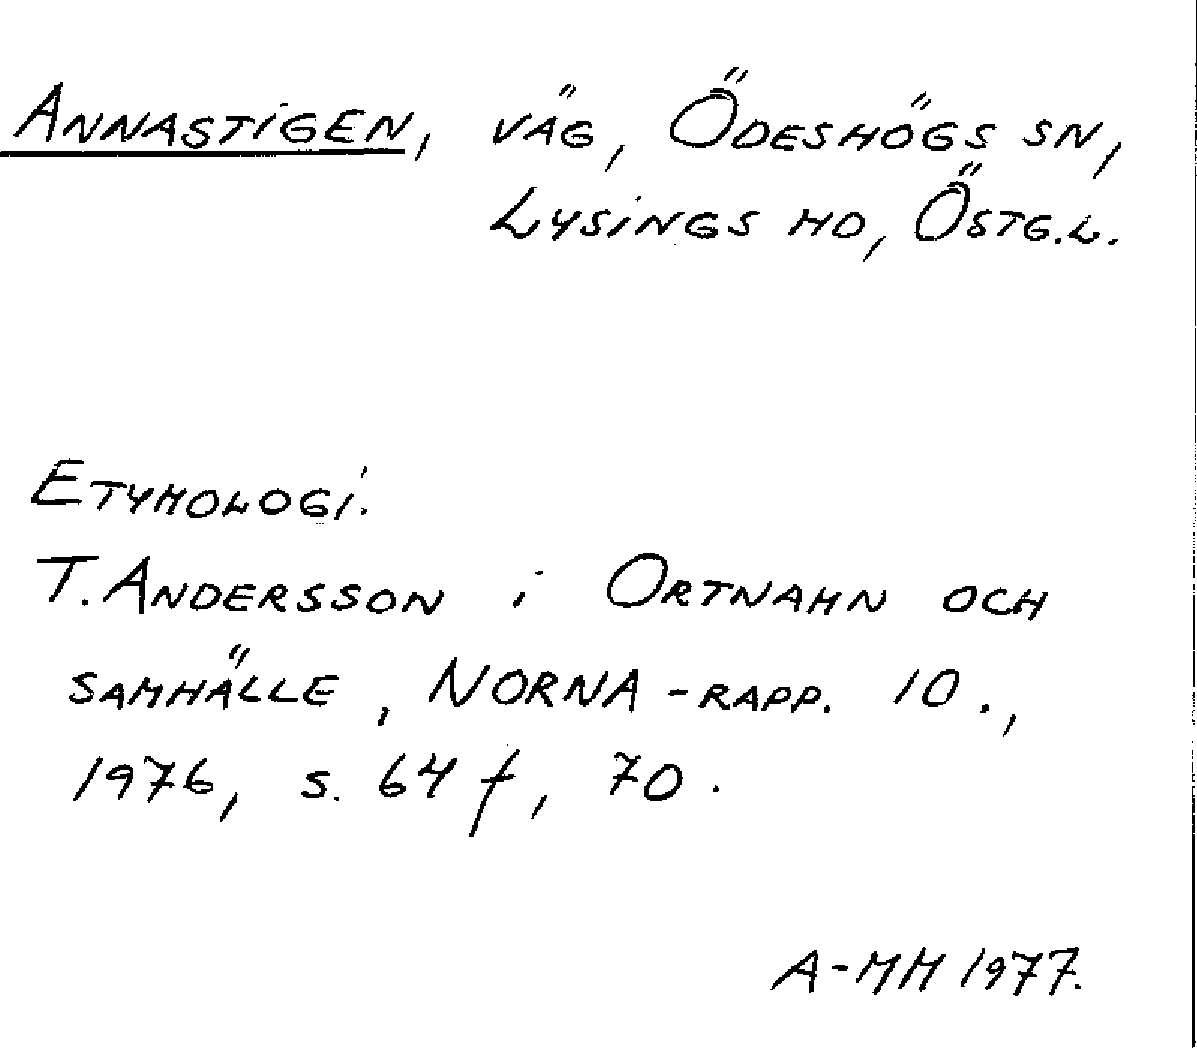 Annastigen, väg, Ödeshögs sn,
Lysings hd, Östg.l.
Etymologi.
T. Andersson i Ortnamn och
samhälle, NORNA-rapp. 10.,
1976, s. 64 f, 70.
A-MM 1977.